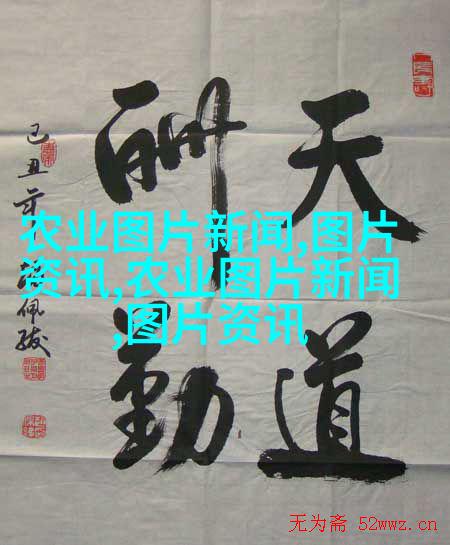 天道
酬勤
己丑年
佩
农业图片新闻,图片
资讯,农业图片新闻
,图片资讯
无为斋 52wwz.cn